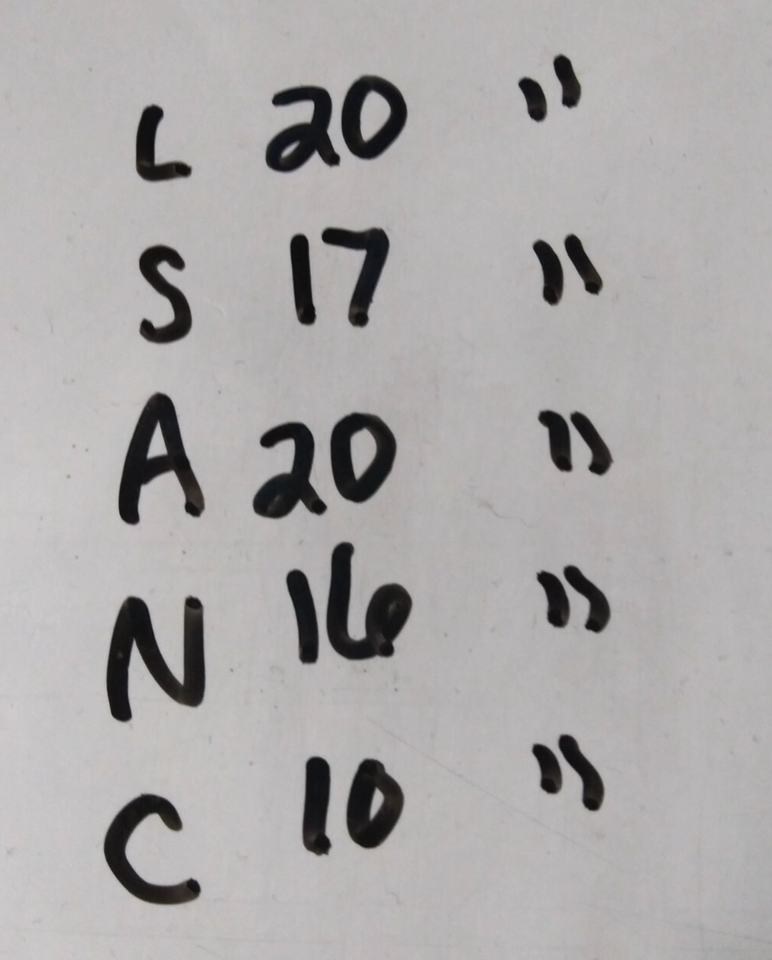 L 20 "
S 17 "
A 20 "
N 16 "
C 10 "